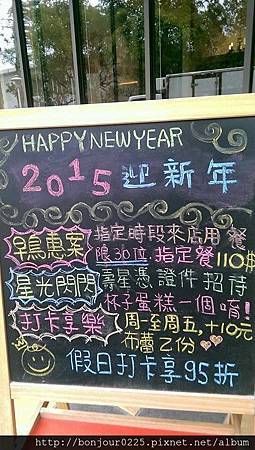 HAPPY NEW YEAR
2015 迎新年
早鳥惠案 指定時段來店用餐
限30位 指定餐110$
星光閃閃 壽星憑證件招待
杯子蛋糕一個唷!
打卡享樂 周一至周五,+10元
布蕾乙份
假日打卡享95折
http://bonjour0225.pixnet.net/album